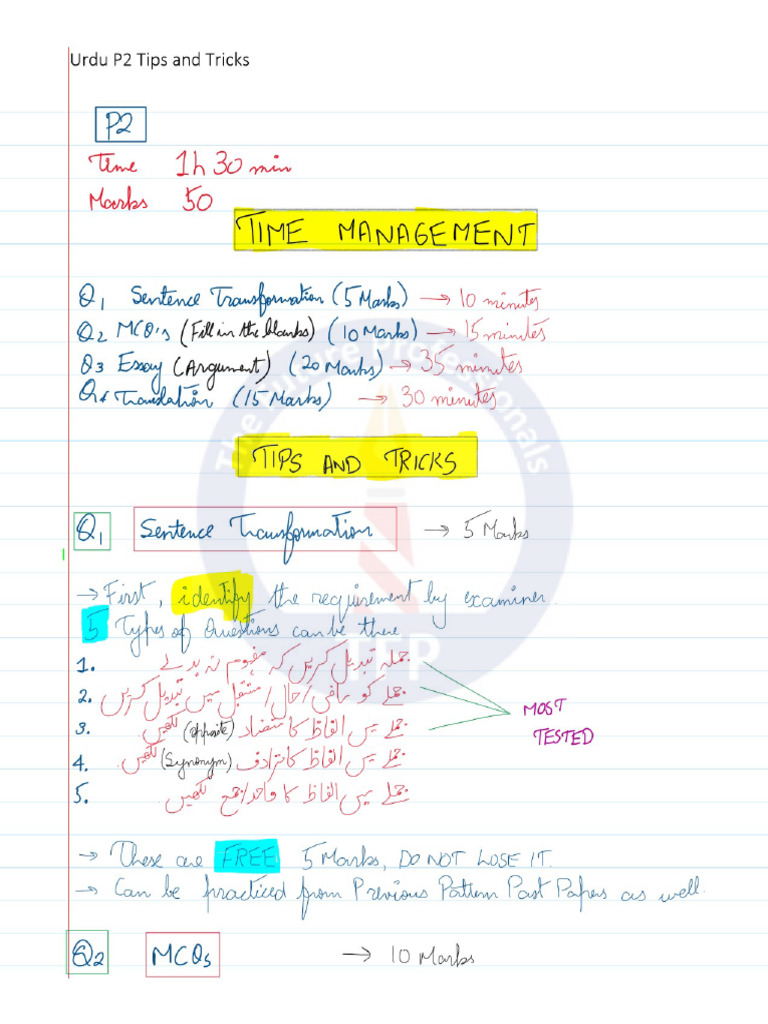 Urdu P2 Tips and Tricks
P2
Time 1h 30 min
Marks 50
TIME MANAGEMENT
Q1 Sentence Transformation (5 Marks) → 10 minutes
Q2 MCQ's (Fill in the blanks) (10 Marks) → 15 minutes
Q3 Essay (Argument) (20 Marks) → 35 minutes
Q4 Translation (15 Marks) → 30 minutes
TIPS AND TRICKS
Q1 Sentence Transformation → 5 Marks
→ First, identify the requirement by examiner.
5 Types of Questions can be there
1. جملہ تبدیل کریں کہ مفہوم نہ بدلے
2. جملے کو ماضی/حال/مستقبل میں تبدیل کریں
3. جملے میں الفاظ کا متضاد (opposite) لکھیں
4. جملے میں الفاظ کا مترادف (Synonym) لکھیں
5. جملے میں الفاظ کا واحد/جمع لکھیں
MOST
TESTED
→ These are FREE 5 Marks, DO NOT LOSE IT.
→ Can be practiced from Previous Pattern Past Papers as well.
Q2 MCQs → 10 Marks
The Future Professionals
TFP